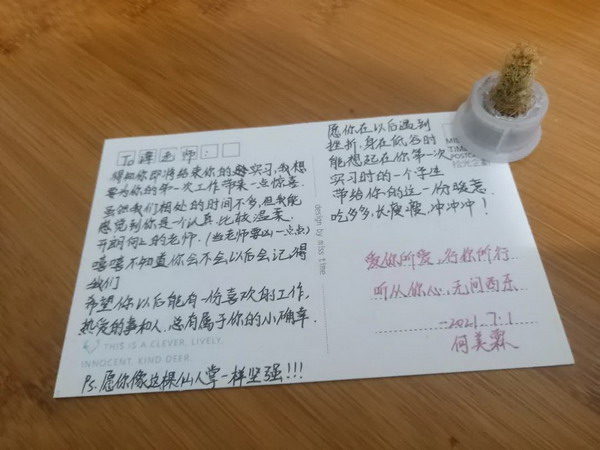 To 谭老师:
得知你即将结束你的实习,我想
要为你的第一次工作带来一点惊喜.
虽然我们相处的时间不多,但我能
感觉到你是一个认真.比较温柔.
开朗向上的老师.(当老师要凶一点点)
嘻嘻不知道你会不会以后会记得
我们
希望你以后能有一份喜欢的工作,
热爱的事和人.总有属于你的小确幸.
THIS IS A CLEVER, LIVELY,
INNOCENT, KIND DEER.
Ps.愿你像这棵仙人掌一样坚强!!!
design by miss time
愿你在以后遇到
挫折,身在低谷时
能想起在你第一次
实习时的一个学生
带给你的这一份惊意.
吃多多,长瘦瘦,冲冲冲!
爱你所爱,行你所行
听从你心,无问西东
-2021.7.1
何美霖